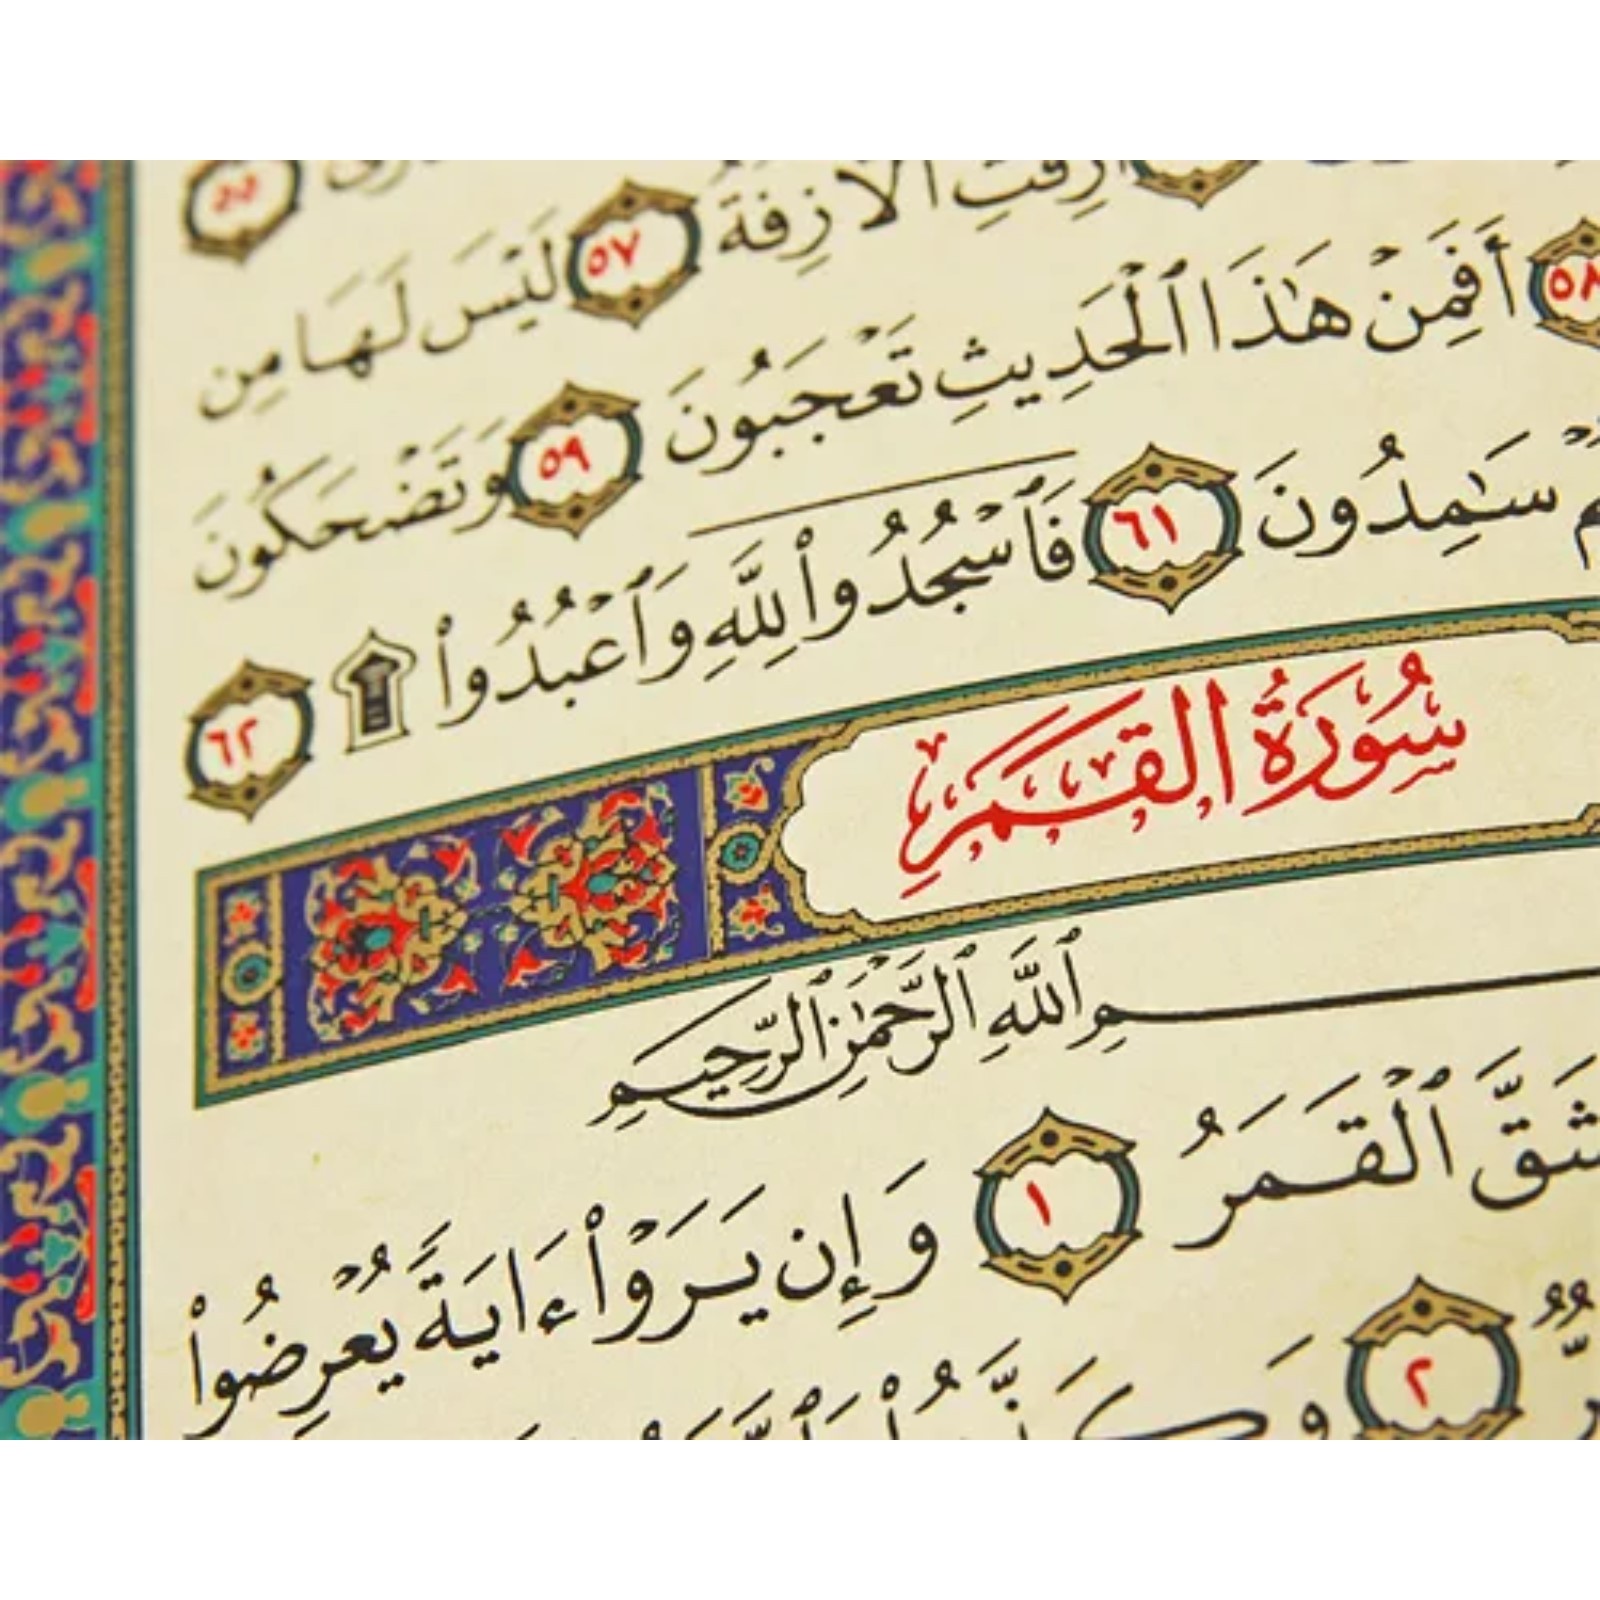 ٥٥
أزفت الآزفة ٥٧ لَيْسَ لَهَا مِن
٥٨ أَفَمِنْ هَٰذَا ٱلْحَدِيثِ تَعْجَبُونَ ٥٩ وَتَضْحَكُونَ
سَٰمِدُونَ ٦١ فَٱسْجُدُوا۟ لِلَّهِ وَٱعْبُدُوا۟ ۩ ٦٢
سُورَةُ القَمَرِ
بِسْمِ ٱللَّهِ ٱلرَّحْمَٰنِ ٱلرَّحِيمِ
شَقَّ ٱلْقَمَرُ ١ وَإِن يَرَوْا۟ ءَايَةً يُعْرِضُوا۟
٢